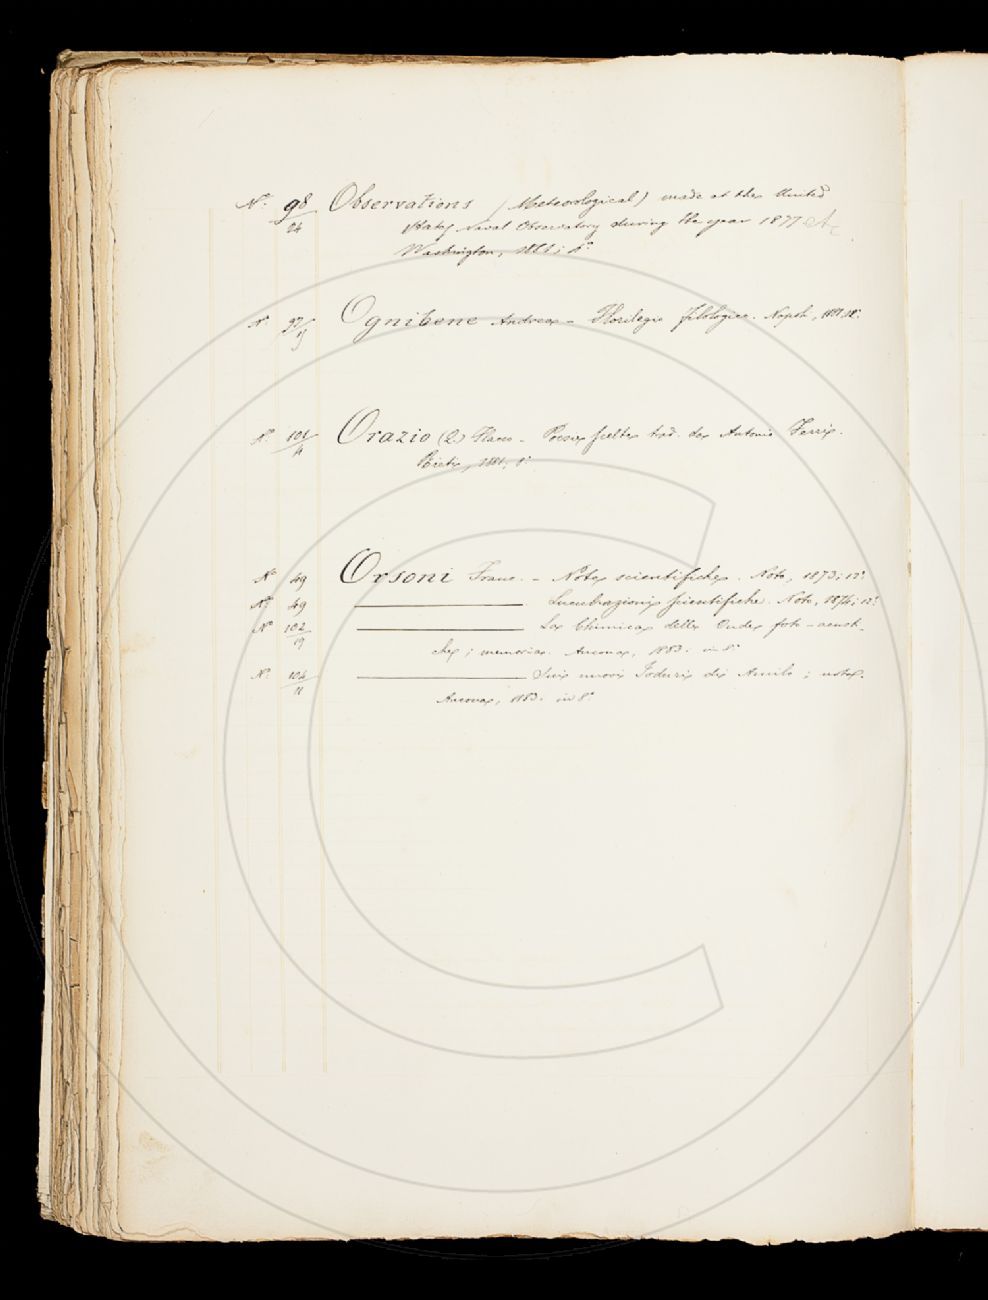 N.º 98/24 Observations (Meteorological) made at the United
States Naval Observatory during the year 1877
Washington, 1881; 4º
N. 97/ Ognibene Andrea - Florilegio filologico. Napoli, 1881
N. 101/4 Orazio (Q.) Flacco - Poesie scelte trad. da Antonio Ferri.
Rieti, 1881, 8º
Nº 49 Orsoni Franc. - Note scientifiche. Noto, 1873; 12º
Nº 49 Lucubrazioni scientifiche. Noto, 1874; 12º
Nº 102/19 La Chimica delle Onde foto-acusti-
che; memoria. Ancona, 1883. in 8º
Nº 104/11 Sui nuovi Joduri di Amilo; nota.
Ancona, 1883. in 8º